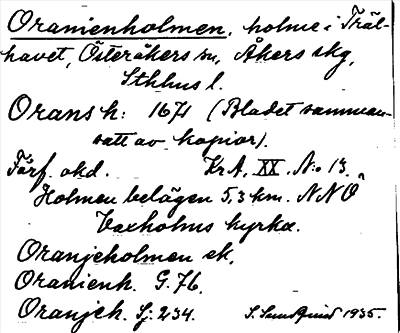 Oranienholmen, holme i Träl-
havet, Österåkers sn, Åkers skg,
Sthlms l.
Orans h: 1671 (Bladet samman-
satt av kopior).
Förf. okd. KrA, XX, N:o 13.
Holmen belägen 5,3 km. NNÖ
Vaxholms kyrka.
Oranjeholmen ek,
Oranienh. G. 76.
Oranjeh. Sj: 234. S. Sundquist 1935.